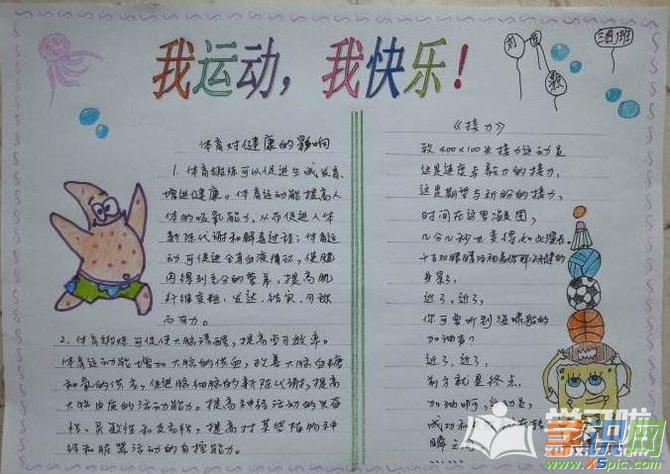 我运动，我快乐！
体育对健康的影响
1. 体育锻炼可以促进生长发育，
增进健康。体育运动能提高人
体的吸氧能力，从而促进人体
新陈代谢和解毒过程；体育运
动可促进全身血液循环，使脑
得到充分的营养，提高肌
纤维变粗、发达、结实、匀称
而有力。
2. 体育锻炼可促使大脑清醒，提高学习效率。
体育运动能增加大脑的供血，改善大脑血糖
和氧的供应，促进脑细胞的新陈代谢，提高
大脑皮质的活动能力。提高神经活动的
性、灵敏性和 提高对某些植物神
经和脏器活动的自控能力。
《接力》
致400×100米接力运动是
这是速度与毅力的接力，
这是期望与祈盼的接力，
时间在这里凝固，
几分几秒也变得如此漫长。
身影，
近了，近了，
你可曾听到海啸般的
加油声？
近了，近了，
前方就是终点，
加油啊，
成功和
瞬
学习啦
学识网
XSpic.com